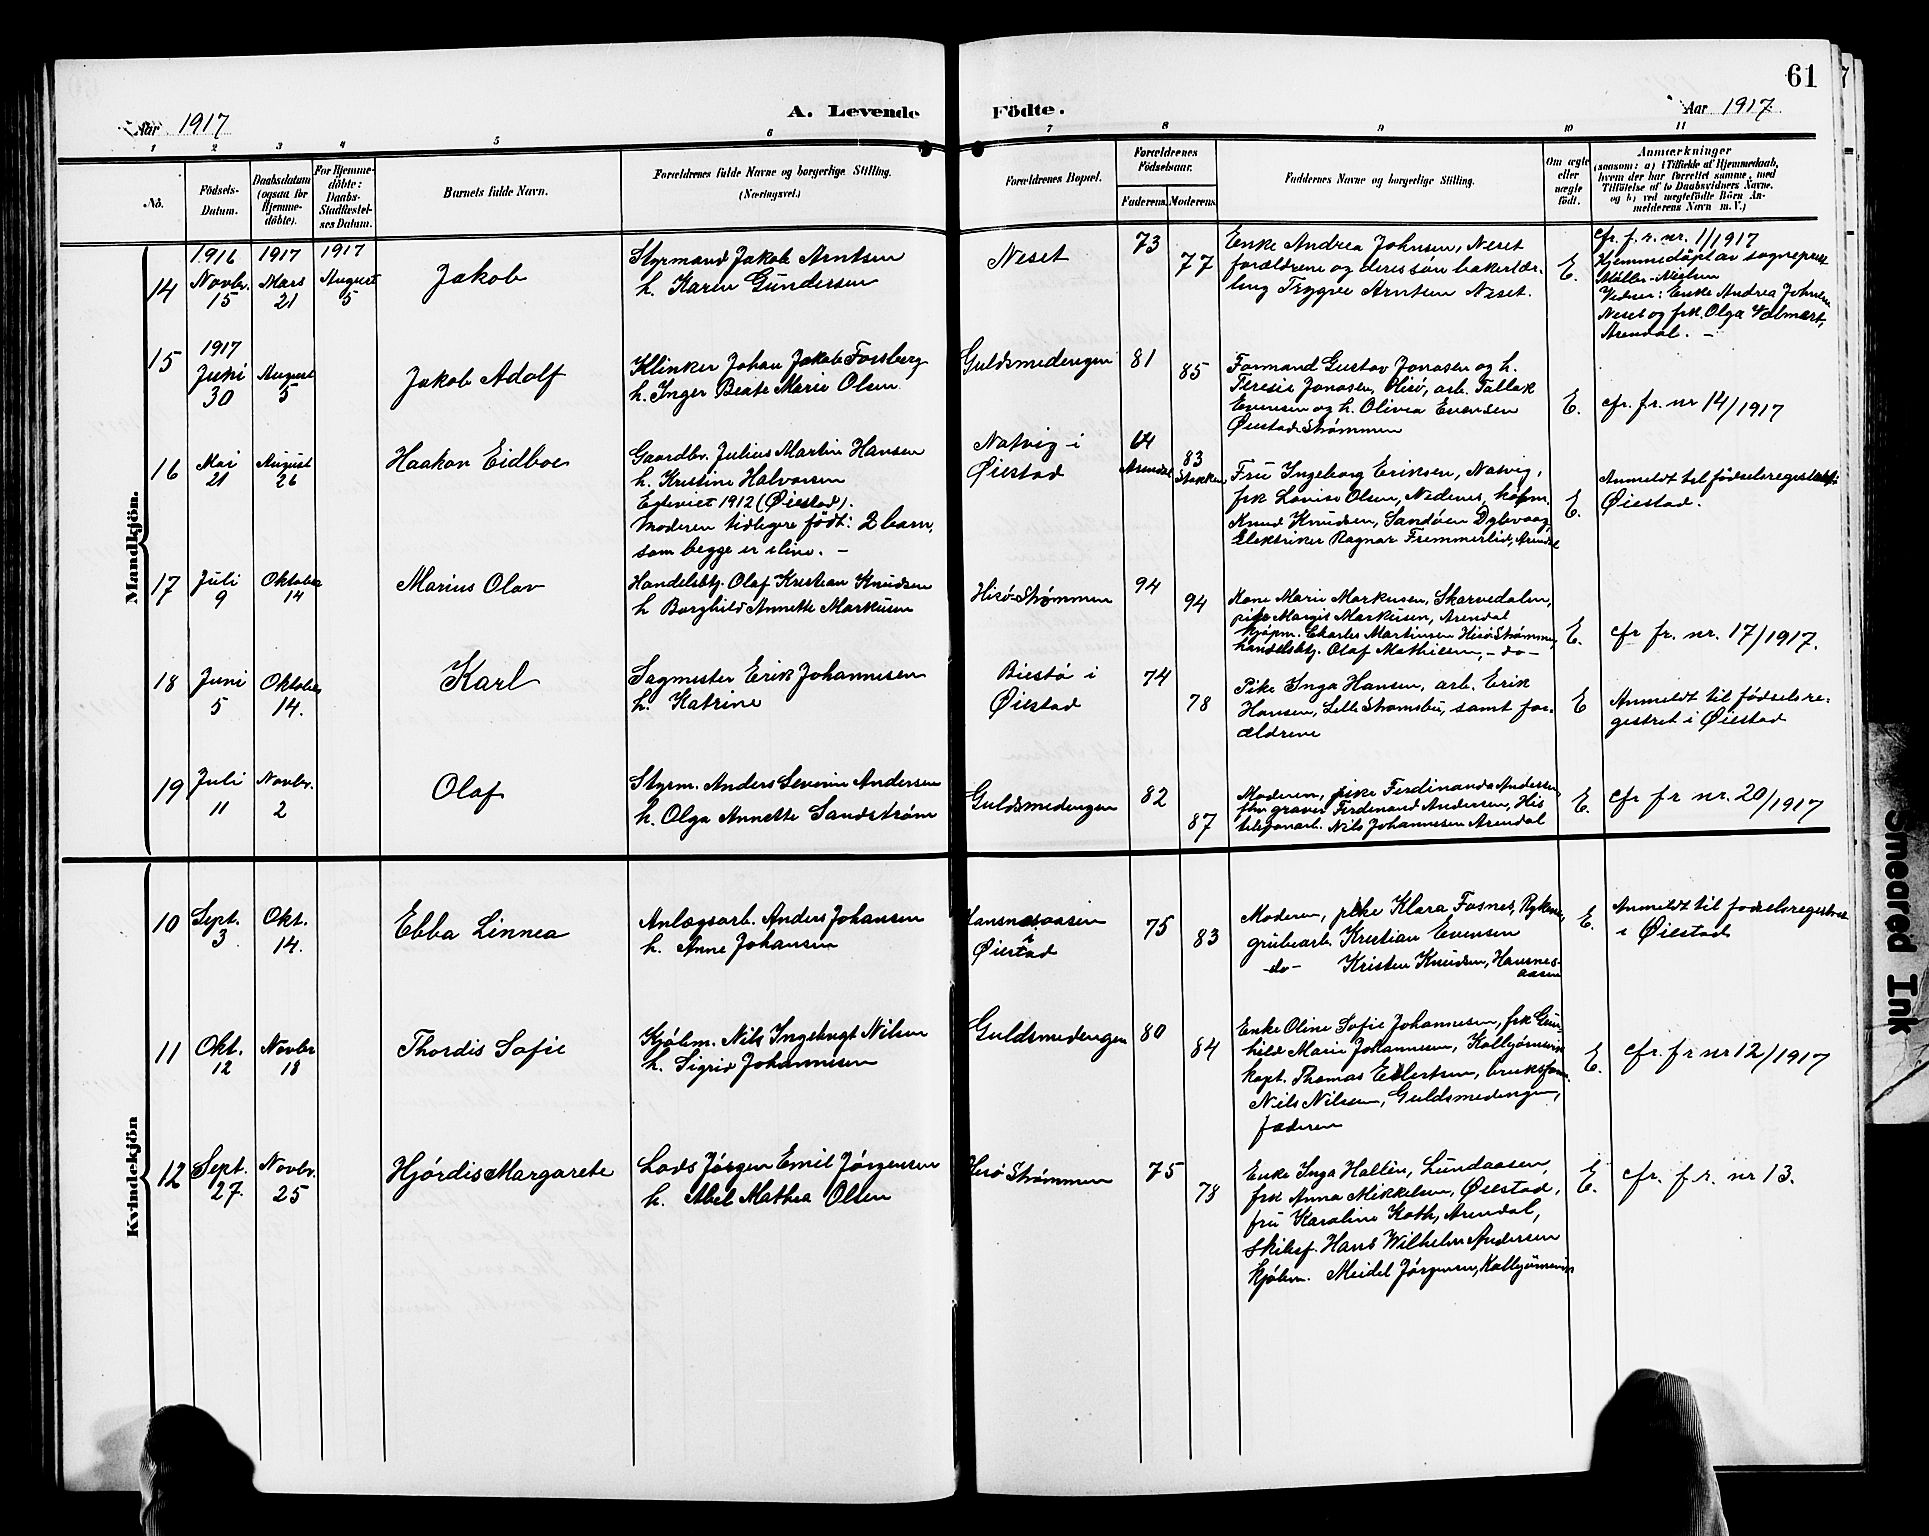 61
Aar 1917
A. Levende
Födte.
Aar 1917
1 2 3 4 5 6 7 8 9 10 11
Nô.
Födsels-
Datum.
Daabsdatum
(ogsaa för
Hjemme-
döbte).
For Hjemme-
döbte:
Daabs-
Stadfæstel-
ses Datum.
Barnets fulde Navn.
Forældrenes fulde Navne og borgerlige Stilling.
(Næringsvei.)
Forældrenes Bopæl.
Forældrenes
Födselsaar.
Faderens.
Moderens.
Faddernes Navne og borgerlige Stilling.
Om ægte
eller
uægte
födt.
Anmærkninger
(saasom: a) i Tilfælde af Hjemmedaab,
hvem der har forrettet samme, med
Tilföielse af to Daabsvidners Navne,
og b) ved uægtefödte Börn An-
melderens Navn m. V.)
Mandkjön.
14
1916
Novbr.
15
1917
Mars
21
1917
August
5
Jakob
Styrmand Jakob Arntsen
h. Karen Gundersen
Neset
73
77
Enke Andrea Johnsen, Neset
forældrene og deres søn bakerlær-
ling Trygve Arntsen Neset.
E.
cfr. f. r. nr. 1/1917
Hjemmedøpt av sogneprest
Møller-Nielsen
Vidner: Enke Andrea Johnsen
Neset og frk. Olga
Arendal. -
15
1917
Juni
30
August
5
Jakob Adolf
Klinker Johan Jakob Forsberg
h. Inger Beate Marie Olsen
Guldsmedengen
81
85
Formand Gustav Jonasen og h.
Teresie Jonasen, Hisø, arb. Tallak
Evensen og h. Olivia Evensen
Øiestad Strømmen
E.
cfr. fr. nr 14/1917
16
Mai
21
August
26
Haakon Eidboe
Gaardbr. Julius Martin Hansen
h. Kristine Halvorsen
Egteviet 1912 (Øiestad).
Moderen tidligere født: 2 barn,
som begge er ilive. -
Natvig i
Øiestad
64
Arendal
83
Stokken
Fru Ingeborg Eriksen, Natvig,
frk Lovise Olsen, Nedenes, køpm.
Knud Knudsen, Sandøen Dybvaag,
Elektriker Ragnar Fremmerlid, Arendal
E.
Anmeldt til fødselsregistret i
Øiestad.
17
Juli
9
Oktober
14
Marius Olav
Handelsbtj. Olaf Kristian Knudsen
h Borghild Annette Markusen
Hisø Strømmen
94
94
Kone Marie Markusen, Skarvedalen,
pike Margit Markusen, Arendal
kjøpm. Charles Martinsen Hisø Strømmen,
handelsbtj. Olaf Mathisen, -do-
E.
cfr fr. nr. 17/1917.
18
Juni
5
Oktober
14.
Karl
Sagmester Erik Johannesen
h. Katrine
Biestø i
Øiestad
74
78
Pike Inga Hansen, arb. Erik
Hansen, Lille Stromsbu, samt for-
ældrene
E
Anmeldt til fødselsre-
gistret i Øiestad
19
Juli
11
Novbr.
2
Olaf
Styrm. Anders Severin Andersen
h. Olga Annette Sandstrøm
Guldsmedengen
82
87
Moderen, pike Ferdinanda Andersen
fhv graver Ferdinand Andersen, His
telefonarb. Nils Johannesen Arendal
E.
cfr fr nr. 20/1917
Kvindekjön
10
Sept.
3
Okt.
14.
Ebba Linnea
Anlægsarb. Anders Johansen
h. Anne Johansen
Hansnesaasen
i
Øiestad
75
83
Moderen, pike Klara Fosnes, Rykene,
grubearb. Kristian Evensen
-do- Kristen Knudsen, Hansnes-
aasen
E.
Anmeldt til fødselsregistret
i Øiestad
11
Okt.
12
Novbr
18
Thordis Sofie
Kjøbm. Nils Ingebrigt Nilsen
h. Sigrid Johannesen
Guldsmedengen
80
84
Enke Oline Sofie Johannesen, frk Gun-
hild Marie Johannesen, Kolbjørnsvik
kapt. Thomas Ellertsen, bruksform.
Nils Nilssen, Guldsmedengen,
faderen
E.
cfr. fr nr 12/1917
12
Sept.
27.
Novbr.
25
Hjørdis Margarete
Lods Jørgen Emil Jørgensen
h. Abel Mathea Olsen
Hisø Strømmen
75
78
Enke Inga Hallén, Lundaasen,
frk Anna Mikkelsen, Øiestad,
fru Karoline Koth, Arendal,
Skibsf. Hans Wilhelm Andersen
kjøbm. Meidel Jørgensen, Kolbjørnsvik
E.
cfr. f. r. nr 13.
Smeared Ink